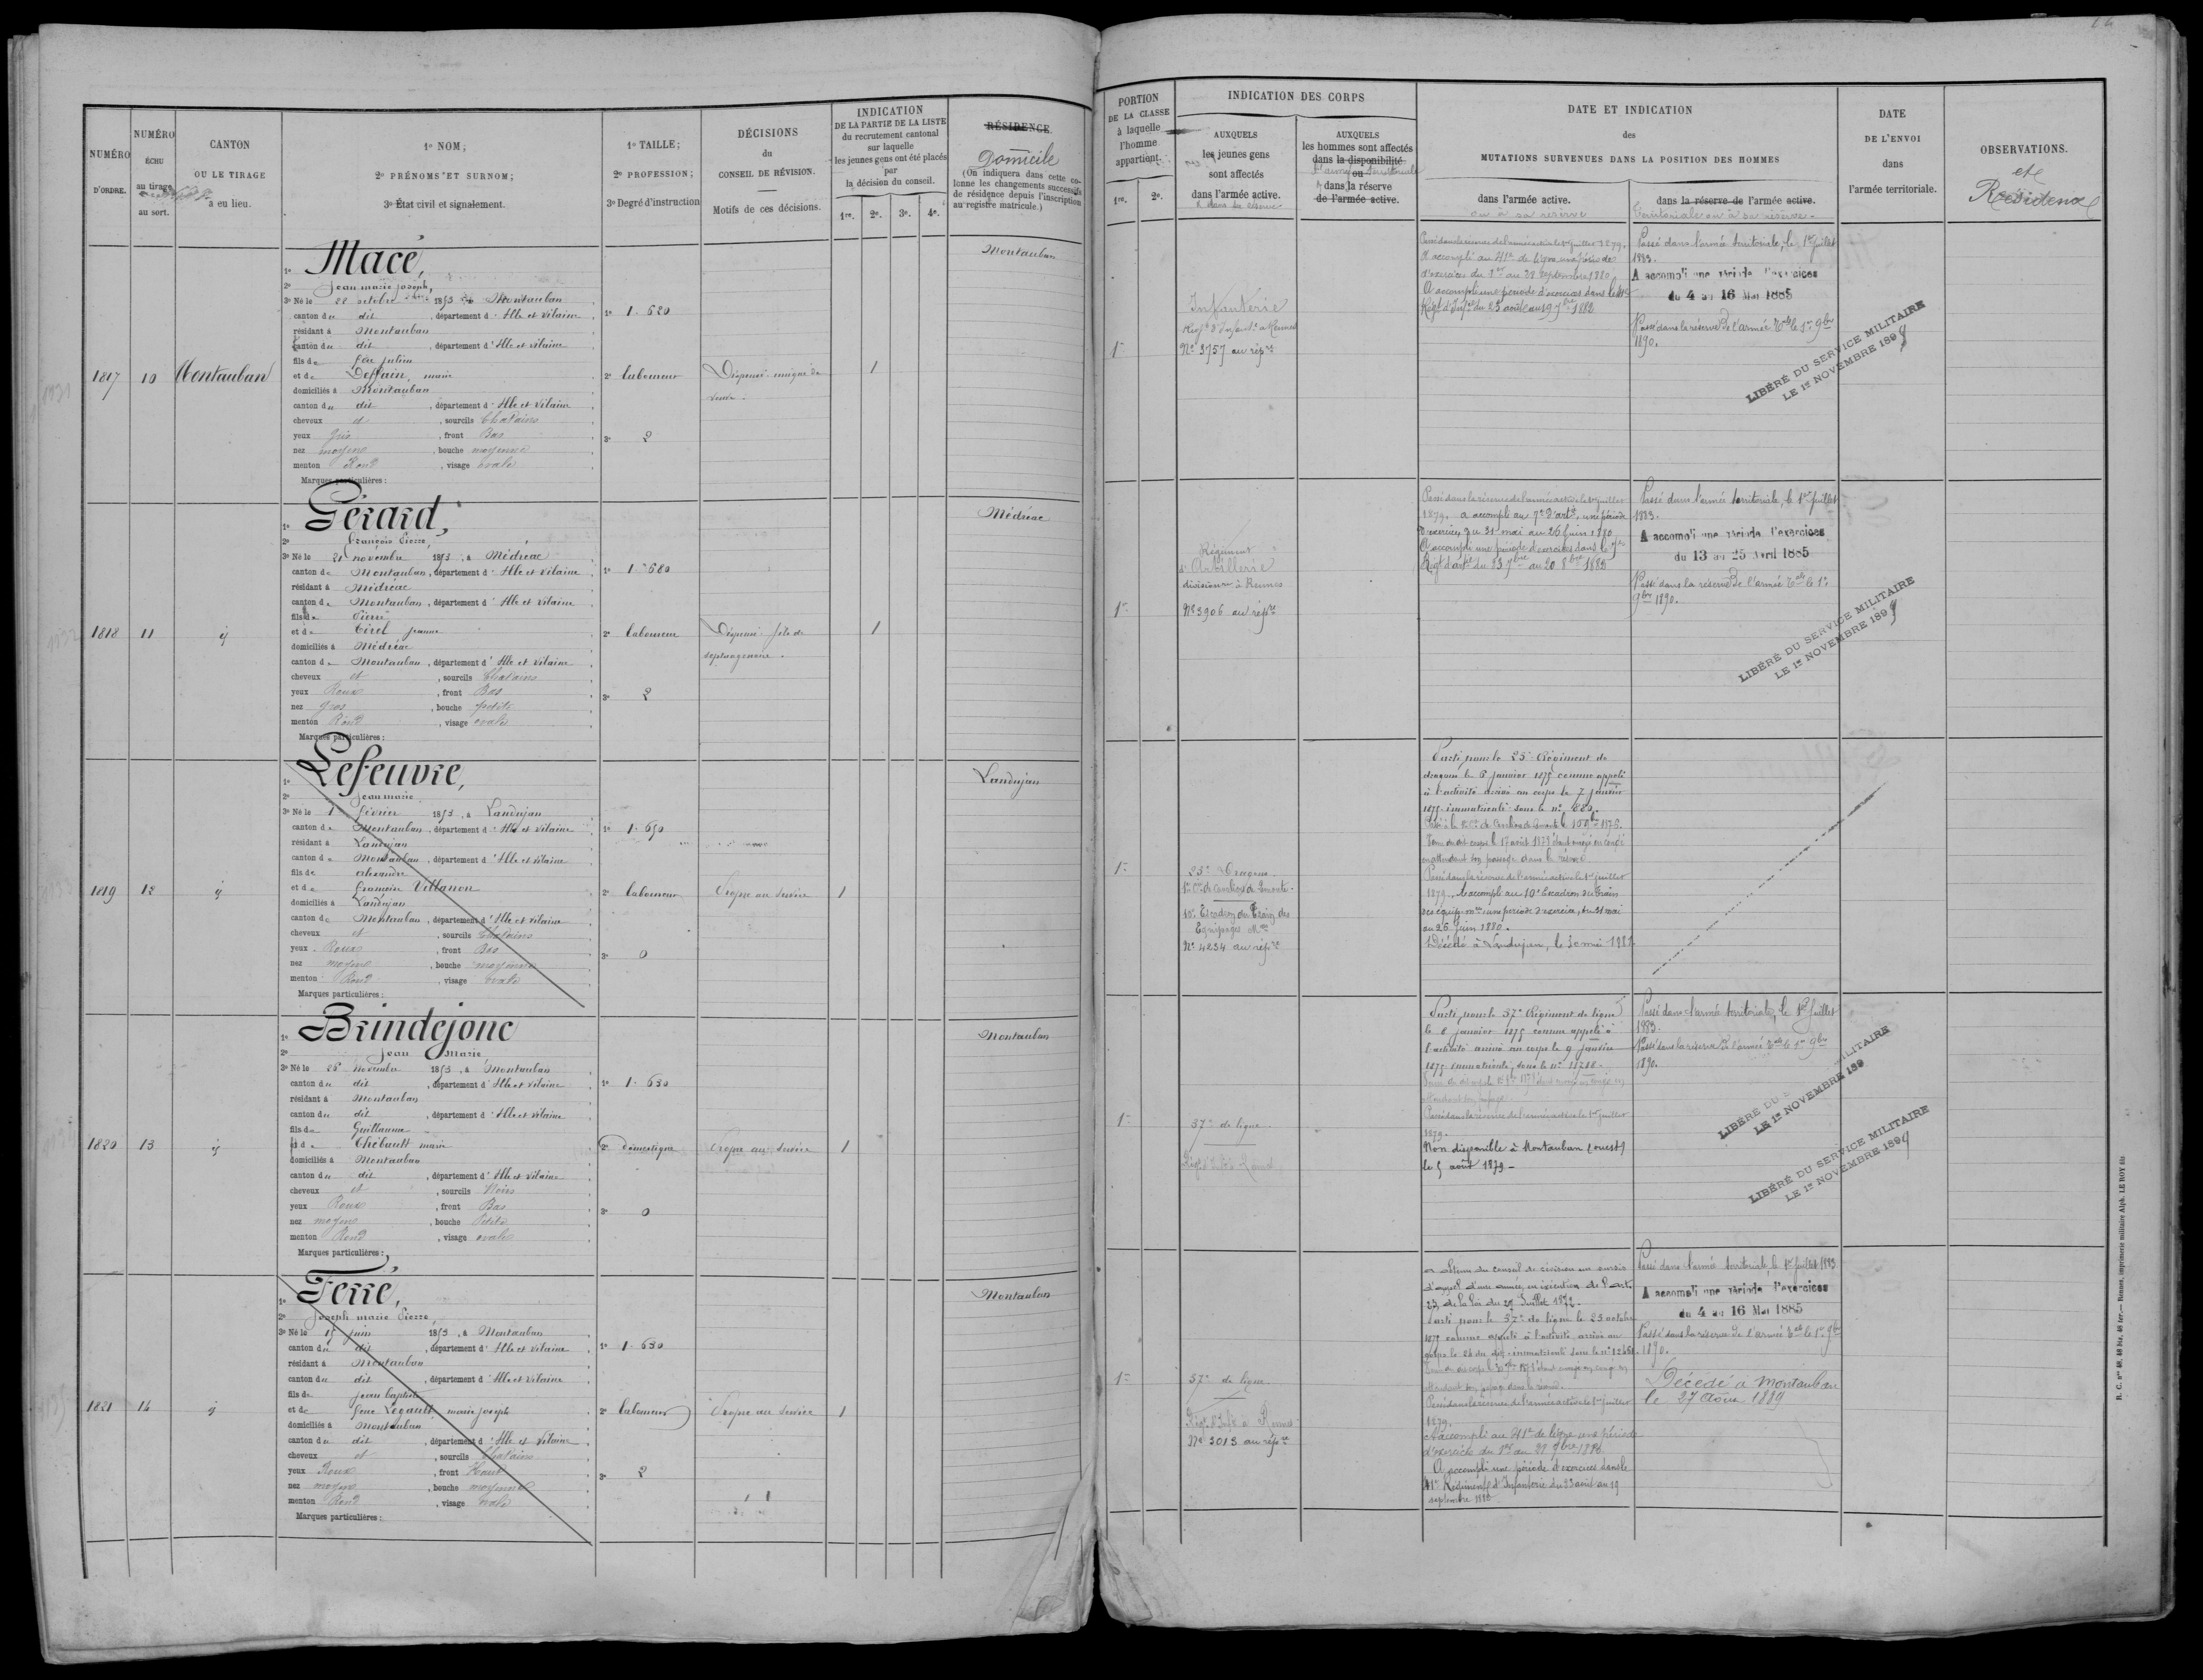 NUMÉRO
D'ORDRE.
NUMÉRO
ÉCHU
au tirage
au sort.
CANTON
OU LE TIRAGE
a eu lieu.
1º NOM;
2º PRÉNOMS ET SURNOM;
3º État civil et signalement.
1º TAILLE;
2º PROFESSION;
3º Degré d'instruction
DÉCISIONS
du
CONSEIL DE RÉVISION.
Motifs de ces décisions.
INDICATION
DE LA PARTIE DE LA LISTE
du recrutement cantonal
sur laquelle
les jeunes gens ont été placés
par
la décision du conseil.
1re. 2e. 3e. 4e.
RÉSIDENCE
Domicile
(On indiquera dans cette co-
lonne les changements successifs
de résidence depuis l'inscription
au registre matricule.)
PORTION
DE LA CLASSE
à laquelle
l'homme
appartient.
1re. 2e.
INDICATION DES CORPS
AUXQUELS
les jeunes gens
sont affectés
dans l'armée active.
et dans la réserve
AUXQUELS
les hommes sont affectés
dans la disponibilité
ou
dans la réserve
de l'armée active.
DATE ET INDICATION
des
MUTATIONS SURVENUES DANS LA POSITION DES HOMMES
dans l'armée active.
ou à sa réserve
dans la réserve de l'armée active.
territoriale ou à sa réserve
DATE
DE L'ENVOI
dans
l'armée territoriale.
OBSERVATIONS.
et
Résidence
1817 10 Montauban
1º Macé,
2º Jean marie Joseph,
3º Né le 22 octobre 1853 à Montauban
canton du dit, département d'Ille et Vilaine
résidant à Montauban
canton du dit, département d'Ille et Vilaine
fils de feu Julien
et de Deffain, marie
domiciliés à Montauban
canton du dit, département d'Ille et Vilaine
cheveux et, sourcils Chatains
yeux Gris, front Bas
nez moyen, bouche moyenne
menton Rond, visage ovale
Marques particulières:
1º 1.620
2º laboureur
3º 2
Dispensé unique de
veuve
1
Montauban
1re
Infanterie
Régt d'Infant. à Rennes
Nº 3757 au répre
Passé dans la réserve de l'armée active le 1er juillet 1879.
A accompli au 41e de ligne une période
d'exercices du 1er au 28 septembre 1880
A accompli une période d'exercices dans le 41e
Régt d'Infie du 23 août au 19 7bre 1882
Passé dans l'armée territoriale, le 1er juillet
1883.
A accompli une période d'exercices
du 4 au 16 Mai 1885
Passé dans la réserve de l'armée Tale le 1er 9bre
1890.
LIBÉRÉ DU SERVICE MILITAIRE
LE 1er NOVEMBRE 1899
1818 11 ij
1º Gérard,
2º François Pierre,
3º Né le 21 novembre 1853, à Médréac
canton de Montauban, département d'Ille et Vilaine
résidant à Médréac
canton de Montauban, département d'Ille et Vilaine
fils de Pierre
et de Tirel Jeanne
domiciliés à Médréac
canton de Montauban, département d'Ille et Vilaine
cheveux et, sourcils Chatains
yeux Roux, front Bas
nez gros, bouche petite
menton Rond, visage ovale
Marques particulières:
1º 1.680
2º laboureur
3º 2
Dispensé fils de
septuagenaire.
1
Médréac
1re
Régiment
d'Artillerie
divisionre à Rennes
Nº 3906 au répre
Passé dans la réserve de l'armée active le 1er juillet
1879, a accompli au 7e d'artie, une période
d'exercices du 31 mai au 26 juin 1880
A accompli une période d'exercices dans le 7e
Régt d'artie du 23 7bre au 20 8bre 1882
Passé dans l'armée territoriale, le 1er juillet
1883.
A accompli une période d'exercices
du 13 au 25 Avril 1885
Passé dans la réserve de l'armée Tale le 1er
9bre 1890.
LIBÉRÉ DU SERVICE MILITAIRE
LE 1er NOVEMBRE 1899
1819 12 ij
1º Lefeuvre,
2º Jean marie
3º Né le 1 février 1853, à Landujan
canton de Montauban, département d'Ille et Vilaine
résidant à Landujan
canton de Montauban, département d'Ille et Vilaine
fils de Alexandre
et de Françoise Villanon
domiciliés à Landujan
canton de Montauban, département d'Ille et Vilaine
cheveux et, sourcils Chatains
yeux Roux, front Bas
nez moyen, bouche moyenne
menton Rond, visage ovale
Marques particulières:
1º 1.650
2º laboureur
3º 0
Propre au service
1
Landujan
1re
25e Dragons
1re Cie de Cavaliers de Remonte
10e Escadron du Train des
Equipages Mres
Nº 4234 au répre
Parti pour le 25e Régiment de
dragons le 6 janvier 1875 comme appelé
à l'activité arrivé au corps le 7 janvier
1875 immatriculé sous le nº 880.
en attendant son passage dans la réserve
Passé dans la réserve de l'armée active le 1er juillet
1879. A accompli au 10e Escadron du train
des équip. mres une période d'exercices, du 31 mai
au 26 juin 1880.
Décédé à Landujan, le 3 mai 1981
1820 13 ij
1º Brindejonc
2º Jean Marie
3º Né le 28 novembre 1853, à Montauban
canton du dit, département d'Ille et Vilaine
résidant à Montauban
canton du dit, département d'Ille et Vilaine
fils de Guillaume
et de Thébault marie
domiciliés à Montauban
canton du dit, département d'Ille et Vilaine
cheveux et, sourcils Noirs
yeux Roux, front Bas
nez moyen, bouche Petite
menton Rond, visage ovale
Marques particulières:
1º 1.630
2º domestique
3º 0
Propre au service
1
Montauban
1re
37e de ligne
Parti pour le 37e Régiment de ligne
le 8 janvier 1875 comme appelé à
l'activité arrivé au corps le 9 janvier
1875 immatriculé sous le nº 11288.
attendant son passage
Passé dans la réserve de l'armée active le 1er juillet
1879.
Non disponible à Montauban (ouest)
le 5 août 1879 -
Passé dans l'armée territoriale, le 1er juillet
1883.
Passé dans la réserve de l'armée Tale le 1er 9bre
1890.
LIBÉRÉ DU MILITAIRE
LE 1er NOVEMBRE 189
LIBÉRÉ DU SERVICE MILITAIRE
LE 1er NOVEMBRE 1899
1821 14 ij
1º Ferré,
2º Joseph marie Pierre
3º Né le 15 juin 1853, à Montauban
canton du dit, département d'Ille et Vilaine
résidant à Montauban
canton du dit, département d'Ille et Vilaine
fils de Jean baptiste
et de feue Legault, marie joseph
domiciliés à Montauban
canton du dit, département d'Ille et Vilaine
cheveux et, sourcils Chatains
yeux Roux, front Haut
nez moyen, bouche moyenne
menton Rond, visage ovale
Marques particulières:
1º 1.630
2º laboureur
3º 2
Propre au service
1
Montauban
1re
37e de ligne
Régt d'Infie à Rennes
Nº 3013 au répre
a obtenu du conseil de révision un sursis
d'appel d'une année en exécution de l'art.
23 de la loi du 27 Juillet 1872.
Parti pour le 37e de ligne le 23 octobre
1875 comme appelé à l'activité, arrivé au
corps le 24 du dit, immatriculé sous le nº 12451.
Passé dans la réserve de l'armée active le 1er juillet
1879.
A accompli au 41e de ligne une période
d'exercices du 1er au 28 7bre 1880.
A accompli une période d'exercices dans le
41e Régiment d'Infanterie du 23 août au 19
septembre 1882
Passé dans l'armée territoriale, le 1er juillet 1883.
A accompli une période d'exercices
du 4 au 16 Mai 1885
Passé dans la réserve de l'armée Tale le 1er 9bre
1890.
Décédé à Montauban
le 27 Août 1889
R. C. nos 48, 48 bis, 48 ter.— Rennes, imprimerie militaire Alph. LE ROY fils